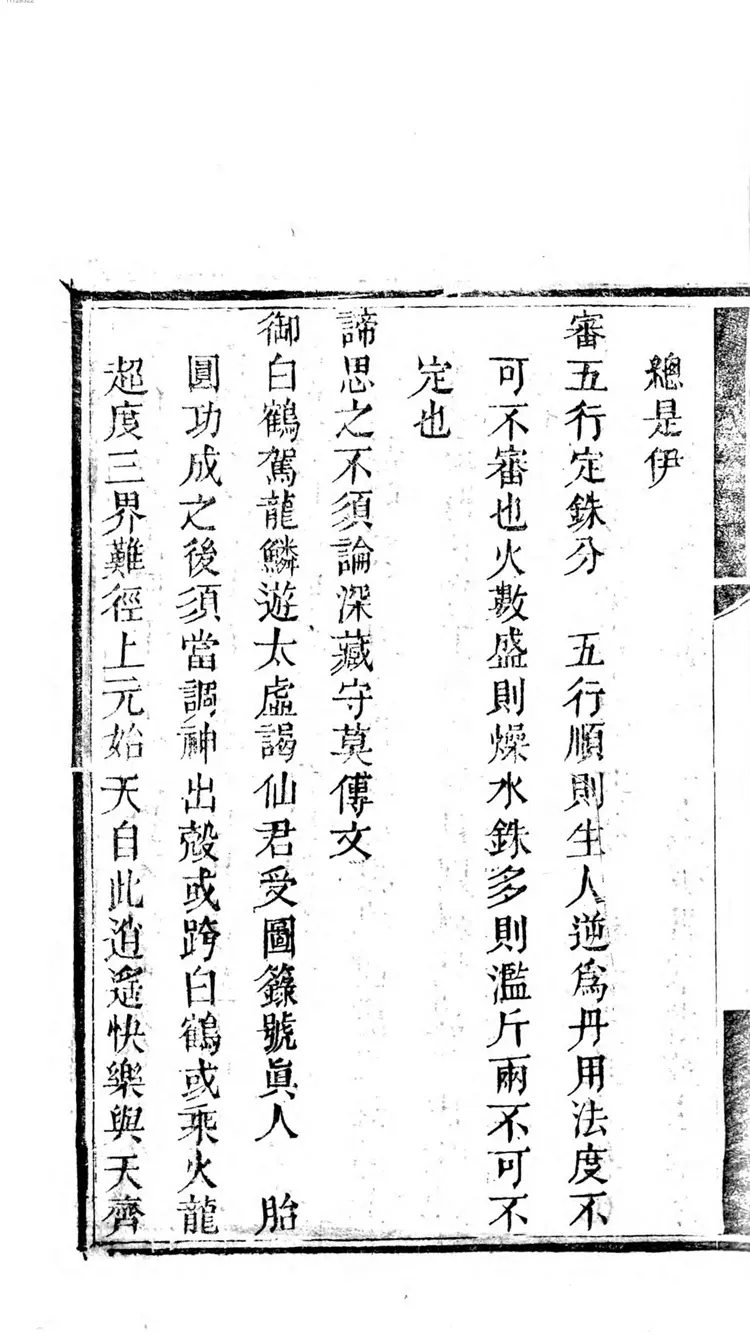 總是伊
審五行定銖分　五行順則生人逆爲丹用法度不
可不審也火數盛則燥水銖多則濫斤兩不可不
定也
諦思之不須論深藏守莫傳文
御白鶴駕龍鱗遊太虛謁仙君受圖籙號眞人　胎
圓功成之後須當調神出殼或跨白鶴或乘火龍
超度三界難徑上元始天自此逍遥快樂與天齊